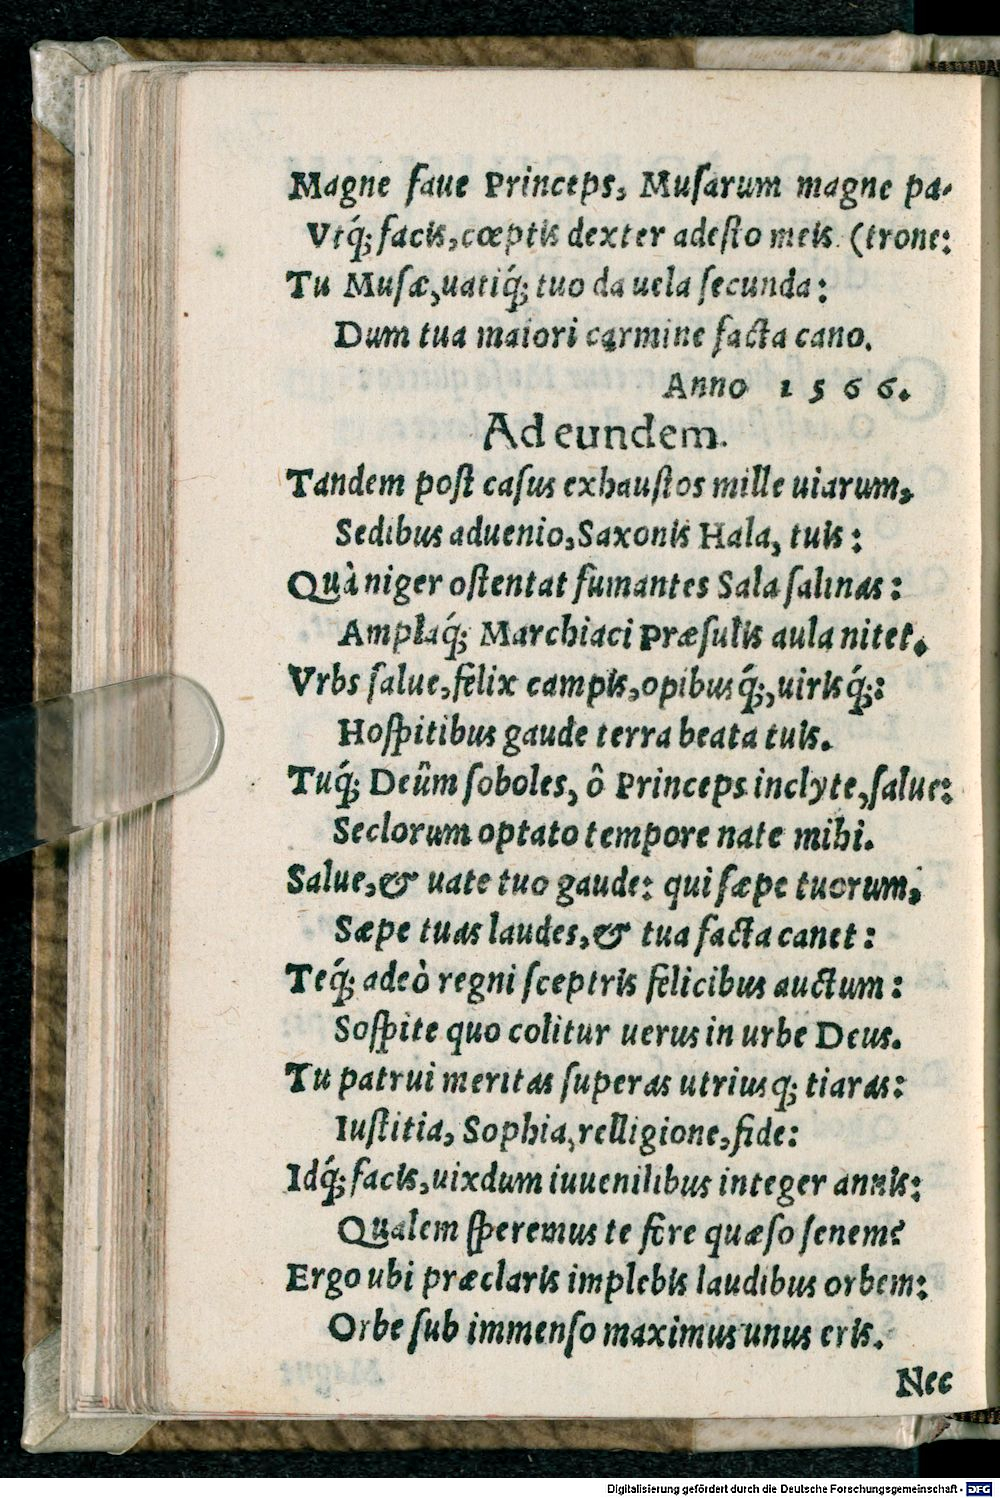 Magne faue Princeps, Musarum magne pa-
Vtq́; facis, cœptis dexter adesto meis. (trone:
Tu Musæ, uatiq́; tuo da uela secunda:
Dum tua maiori carmine facta cano.
Anno 1566.
Ad eundem.
Tandem post casus exhaustos mille uiarum,
Sedibus aduenio, Saxonis Hala, tuis:
Quà niger ostentat fumantes Sala salinas:
Amplaq́; Marchiaci Præsulis aula nitet.
Vrbs salue, felix campis, opibusq́;, uirisq́;:
Hospitibus gaude terra beata tuis.
Tuq́; Deûm soboles, ô Princeps inclyte, salue:
Seclorum optato tempore nate mihi.
Salue, & uate tuo gaude: qui sæpe tuorum,
Sæpe tuas laudes, & tua facta canet:
Teq́; adeò regni sceptris felicibus auctum:
Sospite quo colitur uerus in urbe Deus.
Tu patrui meritas superas utriusq; tiaras:
Iustitia, Sophia, relligione, fide:
Idq́; facis, uixdum iuuenilibus integer annis:
Qualem speremus te fore quæso senem?
Ergo ubi præclaris implebis laudibus orbem:
Orbe sub immenso maximus unus eris.
Nec
Digitalisierung gefördert durch die Deutsche Forschungsgemeinschaft - DFG